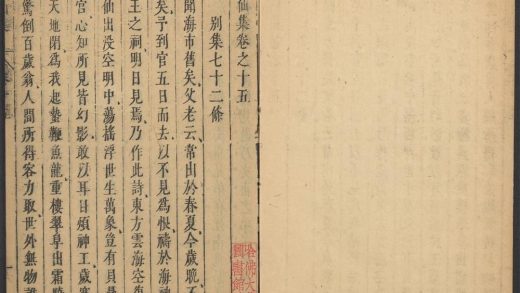 仙集卷之十五
別集七十二條
聞海市舊矣父老云常出於春夏今歲晚不
矣予到官五日而去以不見爲恨禱於海神
王之祠明日見焉乃作此詩東方雲海空復
仙出没空明中蕩搖浮世生萬象豈有貝
宫心知所見皆幻影敢以耳目煩神工歲寒
天地閉爲我起蟄鞭魚龍重樓翠阜出霜曉
驚倒百歲翁人間所得容力取世外無物誰
哈佛大
圖書館